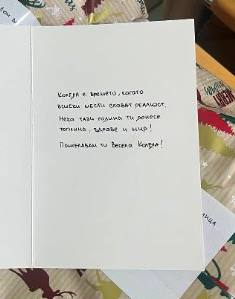 Коледа е времето, когато
всички мечти стават реалност.
Нека тази година ти донесе
топлина, здраве и мир!
Пожелавам ти Весела Коледа!